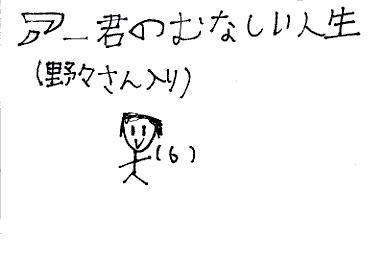 アー君のむなしい人生
(野々さん入り)
(6)